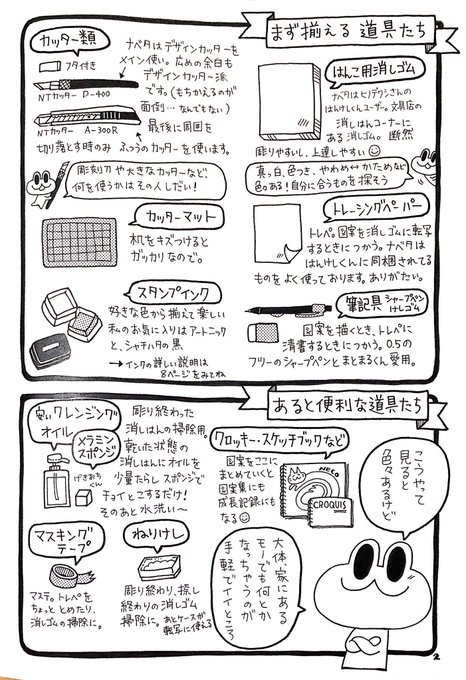 まず揃える道具たち
はんこ用消しゴム
ナベタはヒノデワシさんの
はんけしくんユーザー。文具店の
消しはんコーナーに
ある消しゴム。断然
彫りやすいし、上達しやすい
真っ白、色つき、やわめ↔かためなど
色々ある！自分に合うものを探そう
トレーシングペーパー
トレペ。図案を消しゴムに転写
するときにつかう。ナベタは
はんけしくんに同梱されてる
ものをよく使っております。ありがたい。
筆記具 シャープペン
けしゴム
図案を描くとき、トレペに
清書するときにつかう。0.5の
フリーのシャープペンとまとまるくん愛用。
カッター類
フタ付き
NTカッター D-400
NTカッター A-300R
ナベタはデザインカッターを
メイン使い。広めの余白も
デザインカッター派
です。(もちかえるのが
面倒…なんでもない)
最後に周囲を
切り落とす時のみ ふつうのカッターを使います。
彫刻刀や大きなカッターなど
何を使うかはその人しだい！
カッターマット
机をキズつけると
ガッカリなので。
スタンプインク
好きな色から揃えて楽しい
私のお気に入りはアートニック
と、シャチハタの黒
→インクの詳しい説明は
8ページをみてね
あると便利な道具たち
安いクレンジング
オイル
メラミン
スポンジ
げきおちくん
彫り終わった
消しはんの掃除用。
乾いた状態の
消しはんにオイルを
少量たらしスポンジで
チョイとこするだけ！
そのあと水洗い〜
クロッキー・スケッチブックなど
図案をここに
まとめていくと
図案集にも
成長記録にも
なる
NECO
CROQUIS
こうやって
見ると
色々あるけど
マスキング
テープ
マステ。トレペを
ちょっととめたり、
消しゴムの掃除に。
ねりけし
彫り終わり、捺し
終わりの消しゴム
掃除に。あとケースが
転写に使える
大体、家にある
モノでも何とか
なっちゃうのが
手軽でイイところ
2